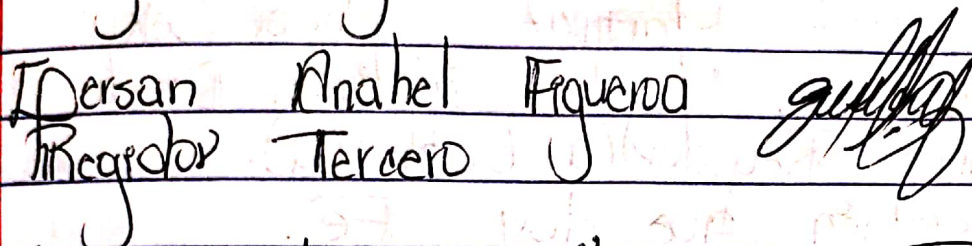 Dersan Anahel Figueroa
Regidor Tercero